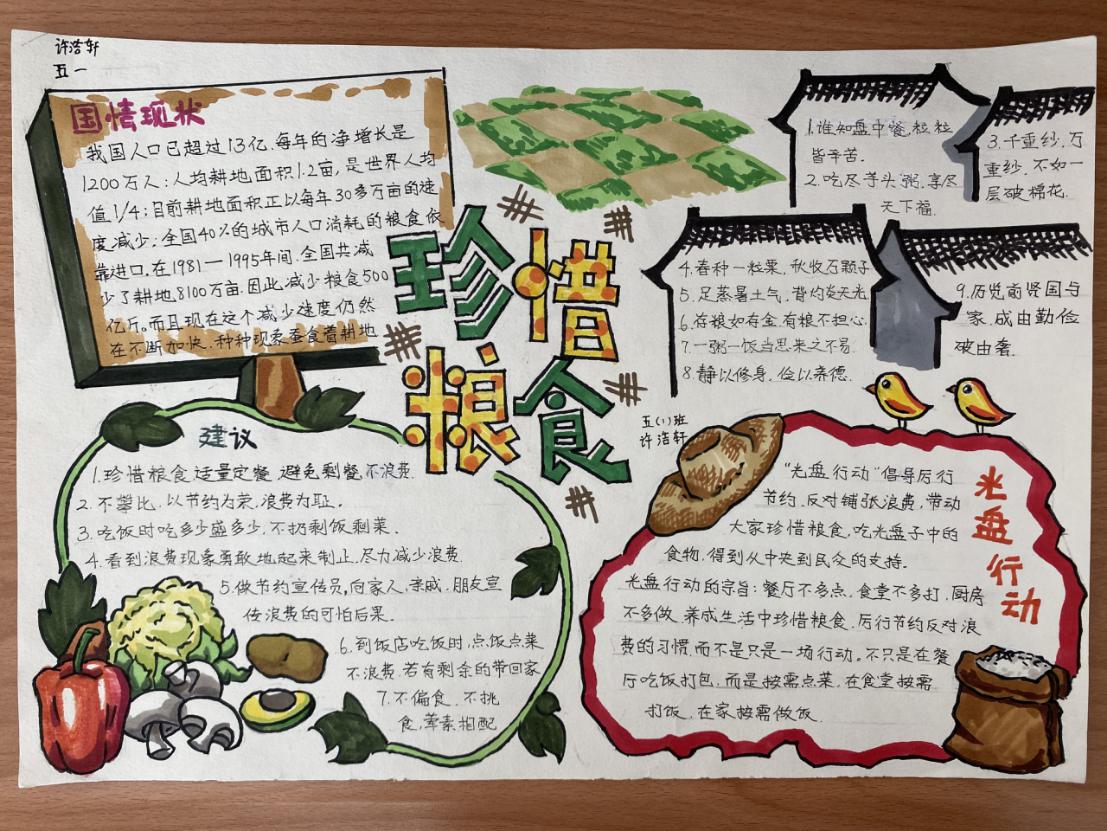 许浩轩
五一
国情现状
我国人口已超过13亿.每年的净增长是
1200万人;人均耕地面积1.2亩,是世界人均
值1/4;目前耕地面积正以每年30多万亩的速
度减少;全国40%的城市人口消耗的粮食依
靠进口.在1981—1995年间.全国共减
少了耕地8100万亩.因此减少粮食500
亿斤。而且现在这个减少速度仍然
在不断加快.种种现象蚕食着耕地
珍惜
粮食
1.谁知盘中餐,粒粒
皆辛苦.
2.吃尽芋头粥.享尽
天下福.
3.千重纱,万
重纱.不如一
层破棉花.
4.春种一粒粟.秋收万颗子
5.足蒸暑土气,背灼炎天光
6.存粮如存金.有粮不担心.
7.一粥一饭当思来之不易.
8.静以修身.俭以养德.
9.历览前贤国与
家.成由勤俭
破由奢.
五(1)班
许浩轩
建议
1.珍惜粮食.适量定餐.避免剩餐.不浪费.
2.不攀比.以节约为荣.浪费为耻.
3.吃饭时吃多少盛多少.不扔剩饭剩菜.
4.看到浪费现象勇敢地起来制止.尽力减少浪费.
5.做节约宣传员,向家人.亲戚.朋友宣
传浪费的可怕后果.
6.到饭店吃饭时.点饭点菜
不浪费.若有剩余的带回家
7.不偏食.不挑
食,荤素相配
光盘行动
“光盘行动”倡导厉行
节约.反对铺张浪费,带动
大家珍惜粮食,吃光盘子中的
食物.得到从中央到民众的支持.
光盘行动的宗旨:餐厅不多点.食堂不多打.厨房
不多做.养成生活中珍惜粮食.厉行节约反对浪
费的习惯.而不是只是一场行动。不只是在餐
厅吃饭打包.而是按需点菜.在食堂按需
打饭.在家按需做饭.